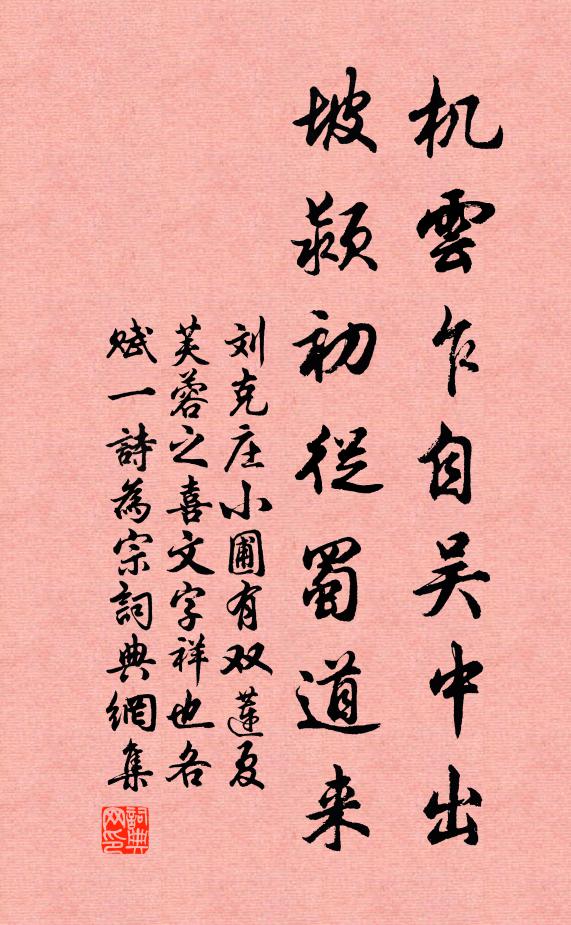 机雲乍自吴中出
坡颍初從蜀道来
刘克庄小圃有双莲夏
芙蓉之喜文字祥也各
赋一詩為宗詞典網集
詞典网印